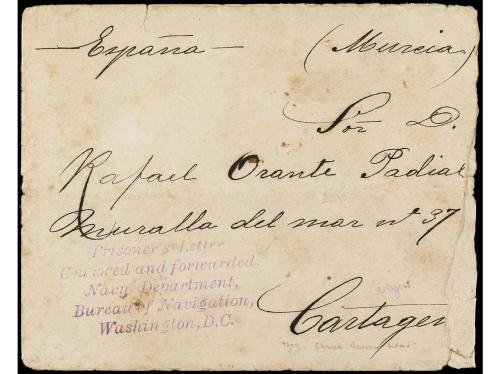 — España — (Murcia)
Sor D.
Rafael Orante Padial
Muralla del mar nº 37
Prisoner's Letter
Censored and forwarded.
Navy Department,
Bureau of Navigation,
Washington, D.C.
Cartagen